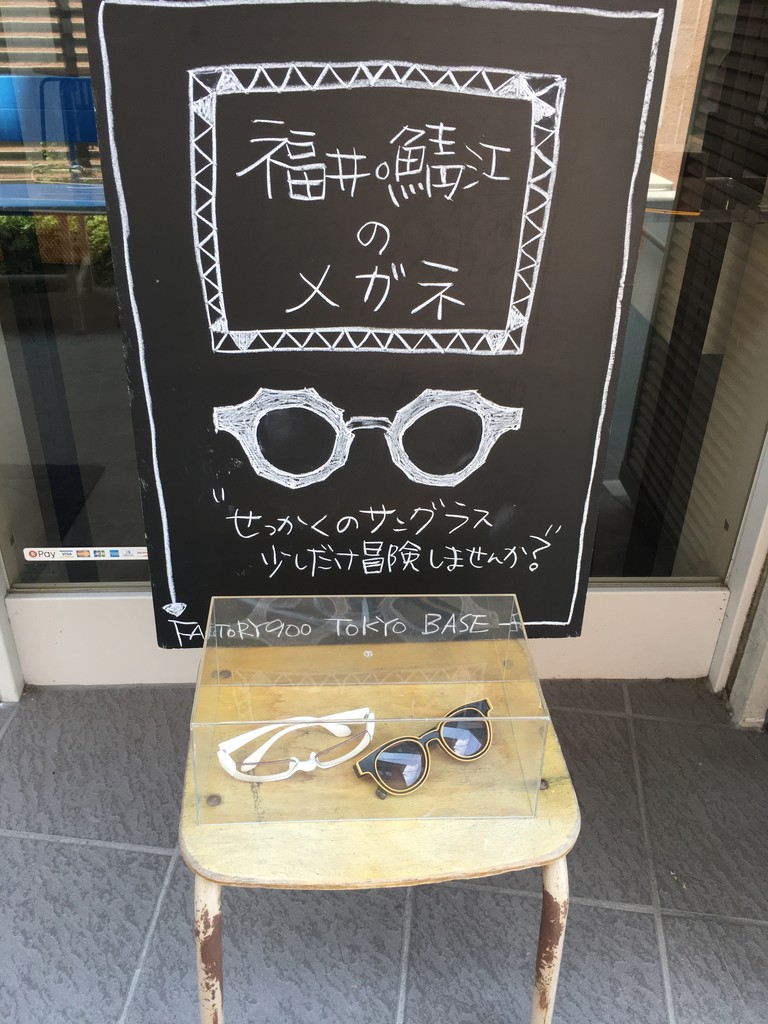 福井。鯖江
の
メガネ
"せっかくのサングラス
少しだけ冒険しませんか?"
FACTORY900 TOKYO BASE
Pay VISA